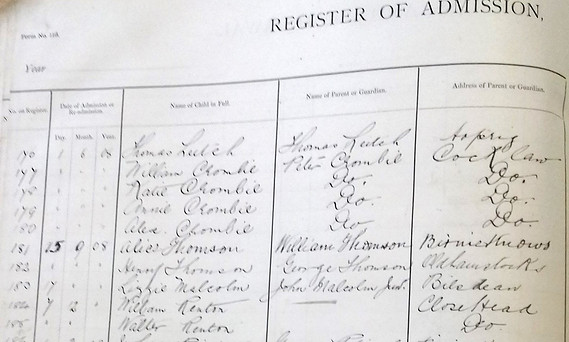 REGISTER OF ADMISSION,
Form No. 110.
Year
No. on Register. Date of Admission or Re-admission. Name of Child in Full. Name of Parent or Guardian. Address of Parent or Guardian.
Day. Month. Year.
176 1 6 08 Thomas Leitch Thomas Leitch
177 " " " William Crombie Peter Crombie Cocklaw
178 " " " Katie Crombie Do. Do.
179 " " " Annie Crombie Do. Do.
180 " " " Alex. Crombie Do Do.
181 15 9 08 Alice Thomson William Thomson Birnieknows
182 " " " Henry Thomson George Thomson Oldhamstocks
183 7 " " Lizzie Malcolm John Malcolm Junr. Bilsdean
184 7 12 " William Renton Closehead
185 " " " Walter Renton Do